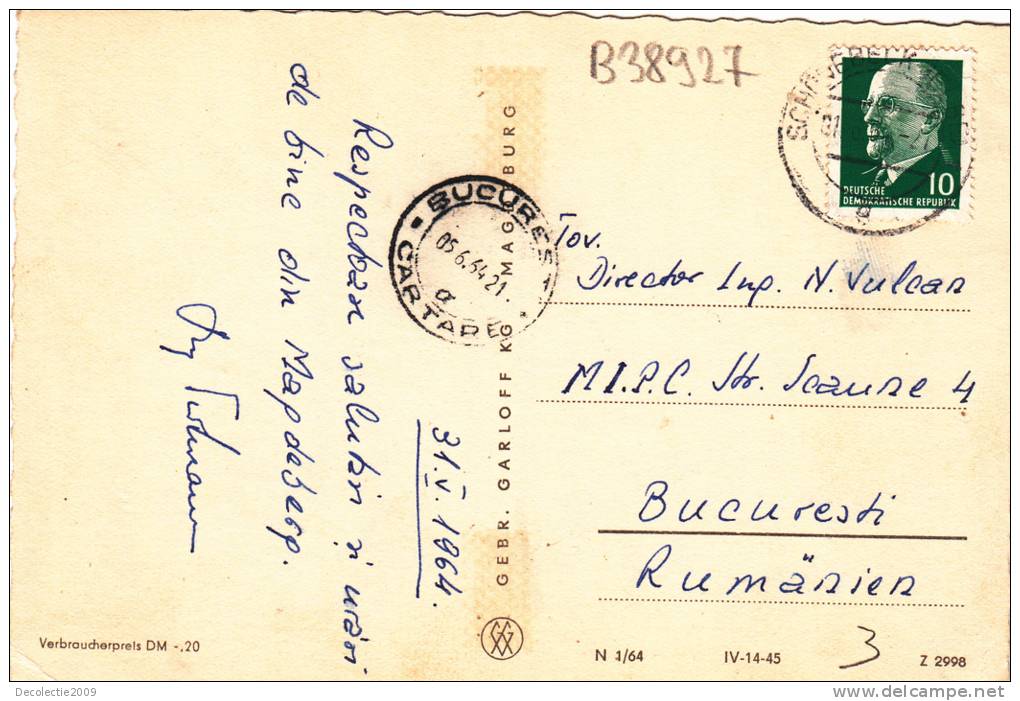 B38927
SCHÖNEBECK
DEUTSCHE
DEMOKRATISCHE REPUBLIK
10
BUCURESTI
05.6.64 21.
a
CARTARE
Respectoase salutări și urări
de bine din Magdeburg.
Ing.
31.V.1964.
GEBR. GARLOFF KG MAGDEBURG
Tov.
Director Ing. N. Vulcan
M.I.P.C. Str. Scaune 4
Bucuresti
Rumänien
Verbraucherpreis DM -,20
N 1/64
IV-14-45
3
Z 2998
Decolectie2009
www.delcampe.net